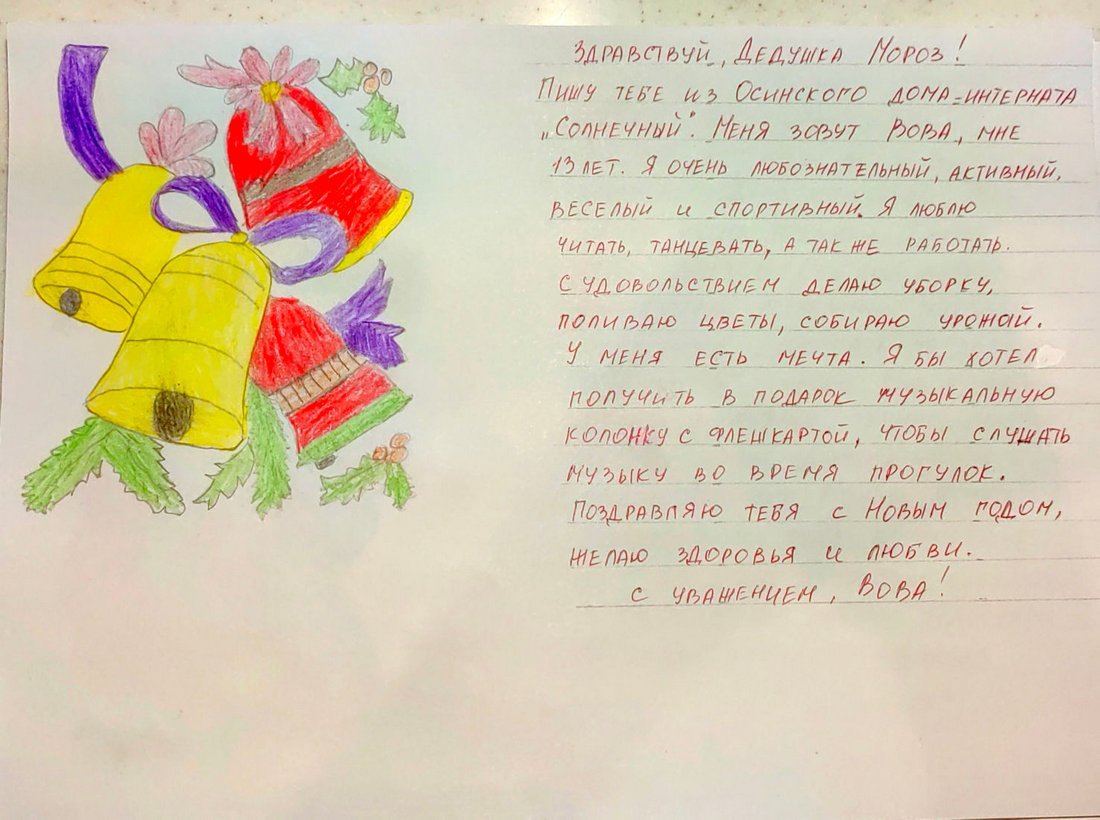 Здравствуй, Дедушка Мороз!
Пишу тебе из Осинского дома-интерната
„Солнечный". Меня зовут Вова, мне
13 лет. Я очень любознательный, активный,
веселый и спортивный. Я люблю
читать, танцевать, а так же работать.
С удовольствием делаю уборку,
поливаю цветы, собираю урожай.
У меня есть мечта. Я бы хотел
получить в подарок музыкальную
колонку с флешкартой, чтобы слушать
музыку во время прогулок.
Поздравляю тебя с Новым годом,
желаю здоровья и любви.
С уважением, Вова!